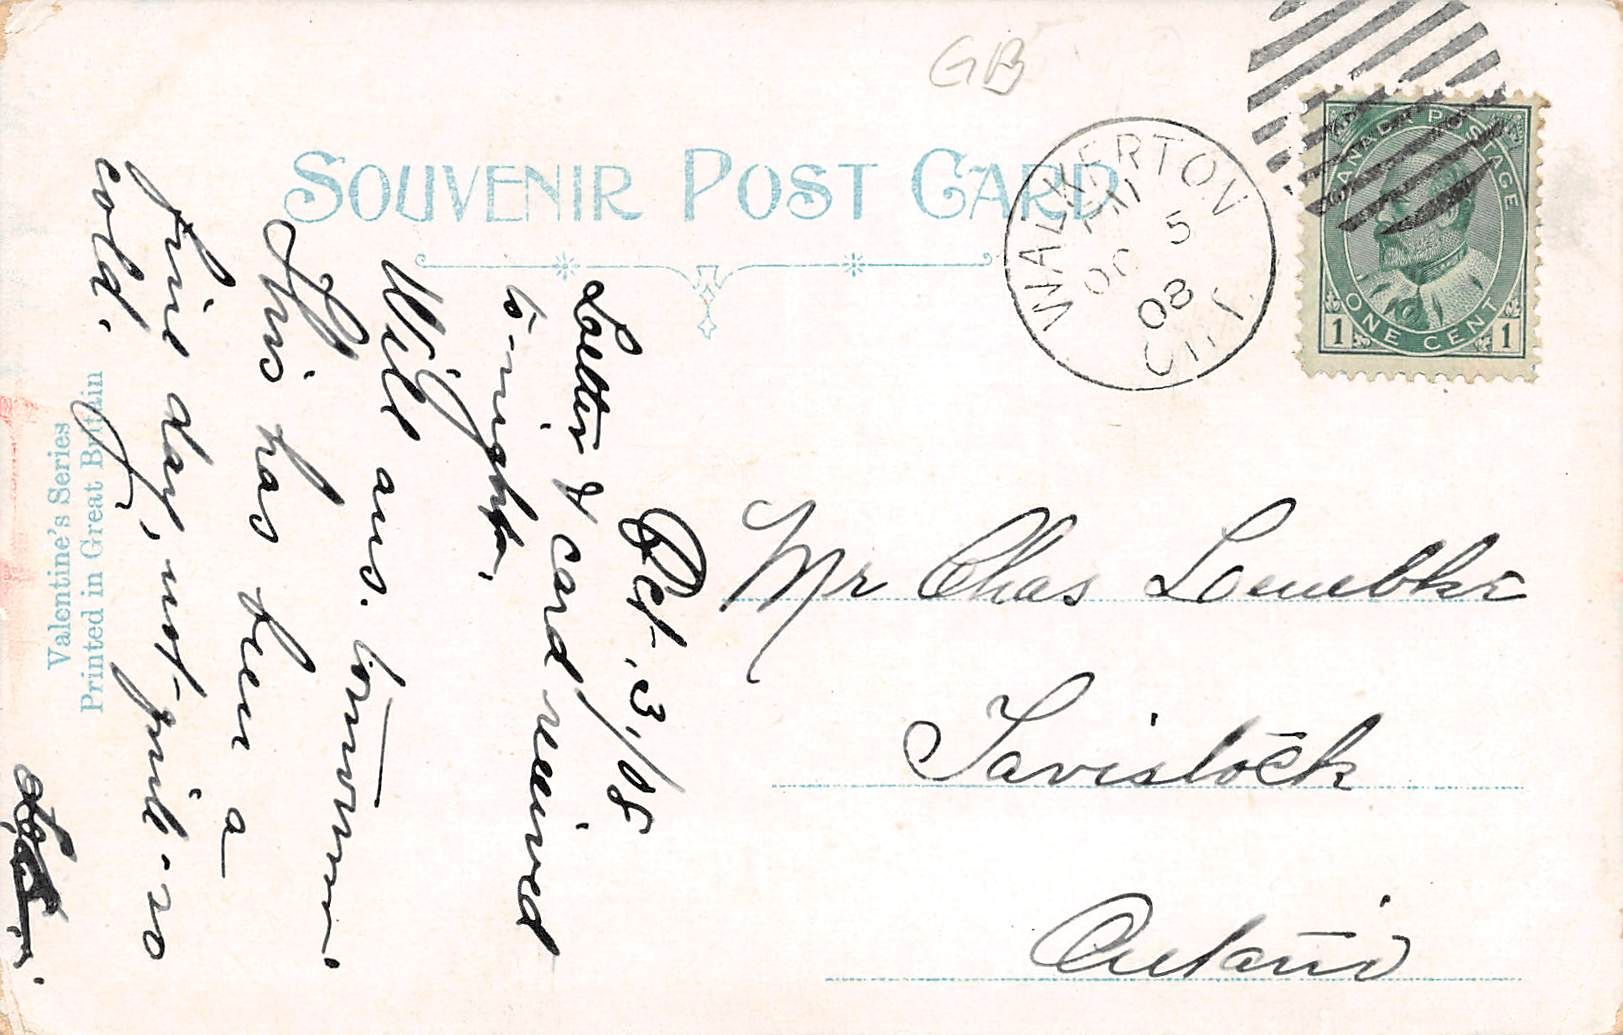 GB
SOUVENIR POST CARD
WALKERTON
5
OC
08
ONT
CANADA POSTAGE
ONE CENT
1 1
Oct. 3,/08
Letter & card received
to-night.
Will ans. tomorrow.
This has been a
fine day, not quite so
cold.
Valentine's Series
Printed in Great Britain
Mr Chas Loembke
Tavistock
Ontario